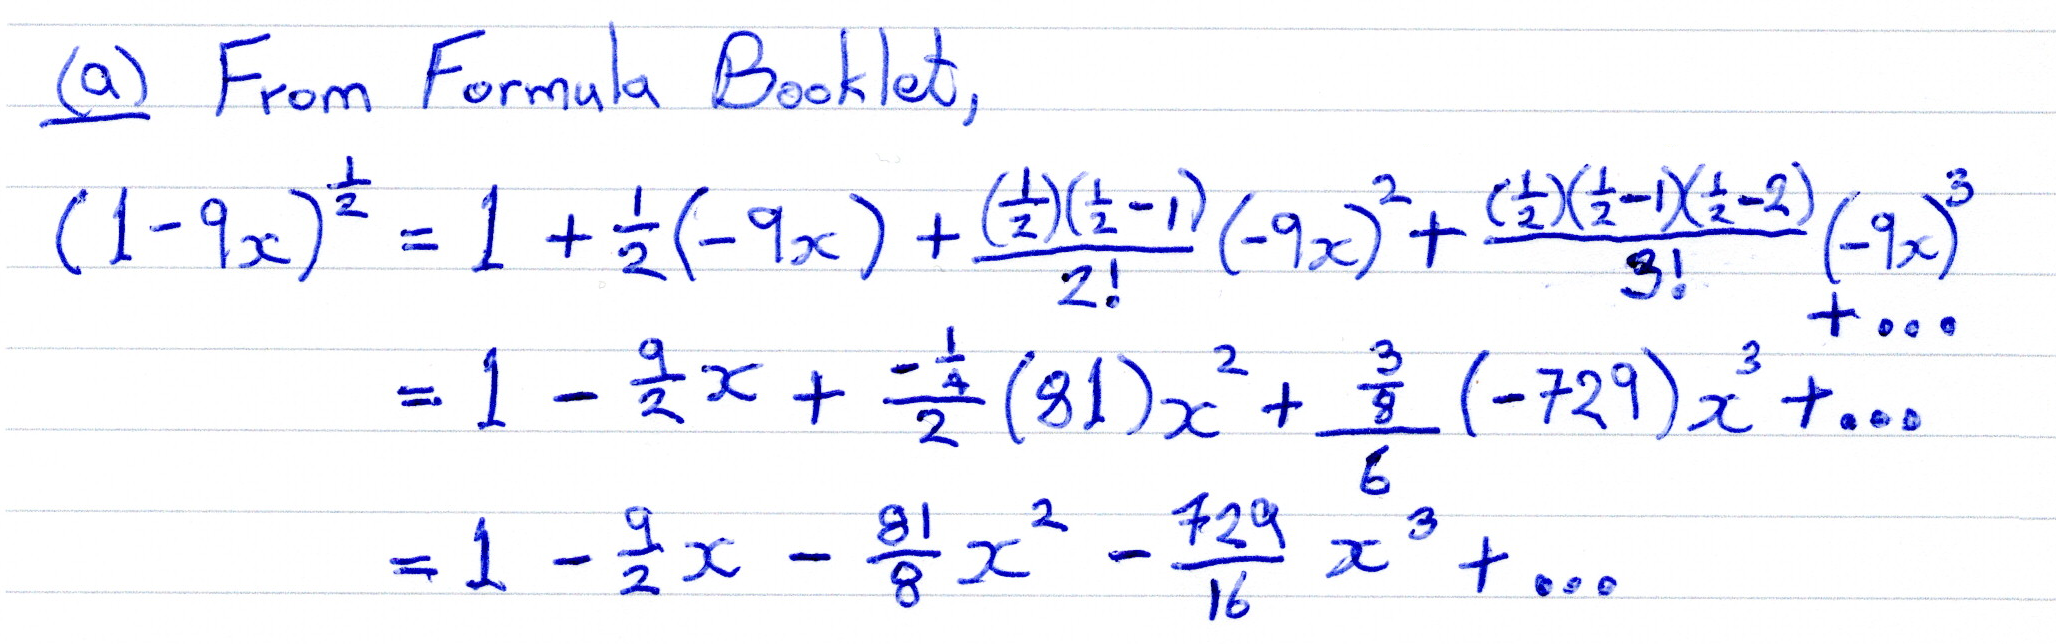 (a) From Formula Booklet,
(1-9x)^{1/2} = 1 + 1/2(-9x) + (1/2)(1/2-1)/2! (-9x)^2 + (1/2)(1/2-1)(1/2-2)/3! (-9x)^3
+...
= 1 - 9/2 x + (-1/4)/2 (81)x^2 + (3/8)/6 (-729)x^3 +...
= 1 - 9/2 x - 81/8 x^2 - 729/16 x^3 + ...